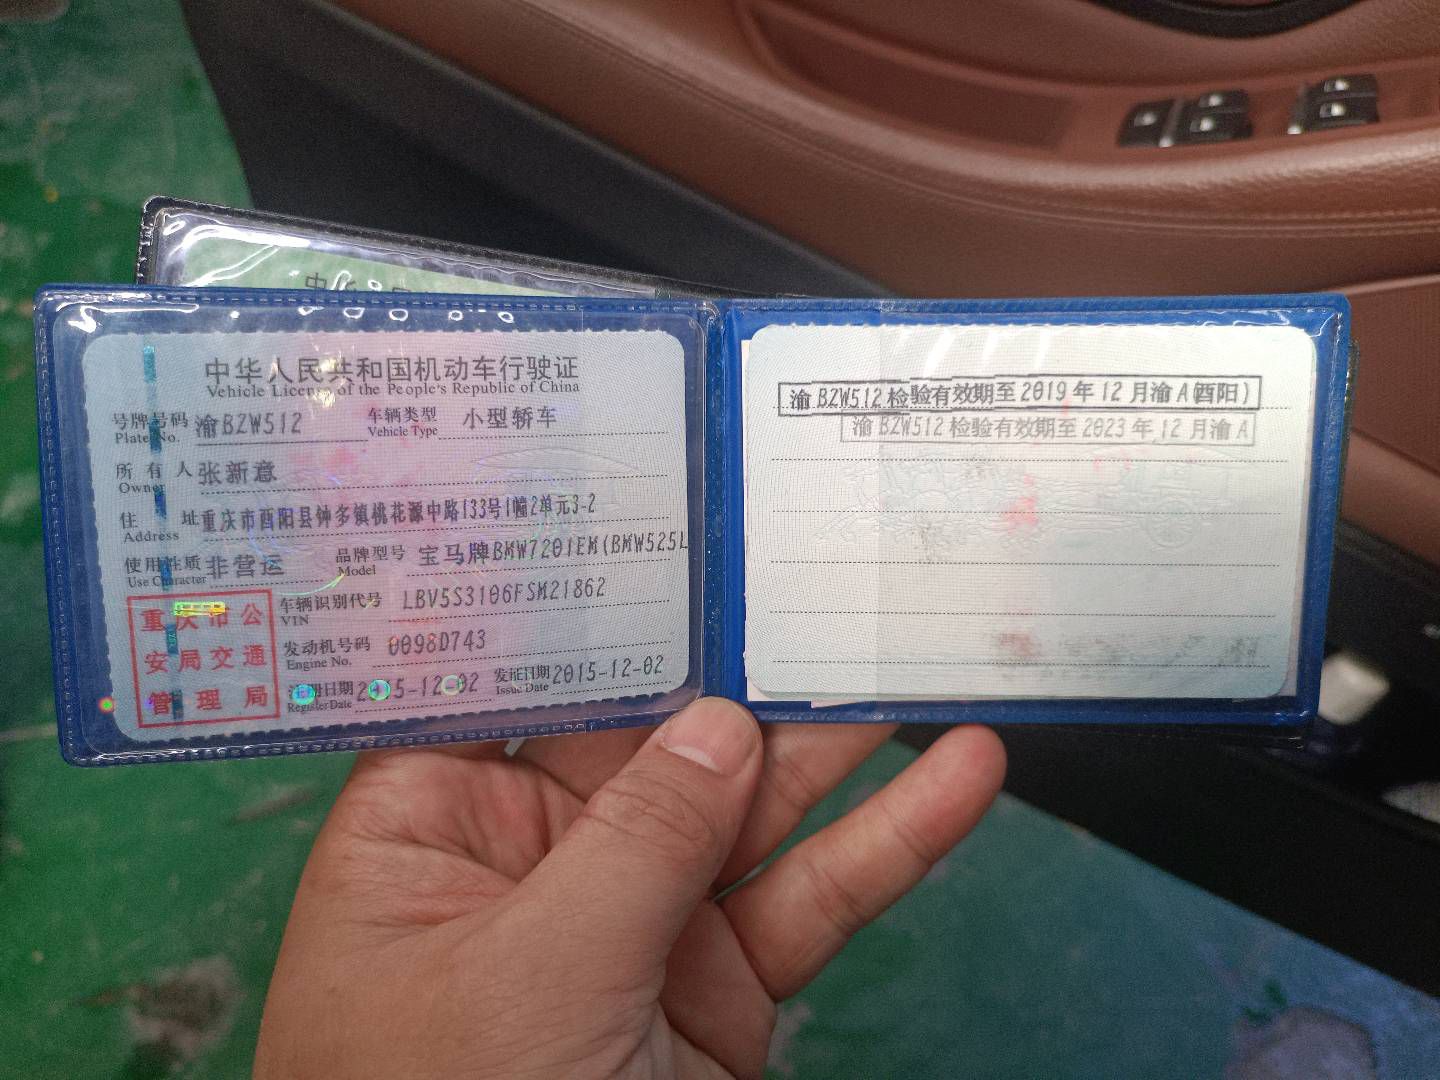 中华人民共和国机动车行驶证
Vehicle License of the People's Republic of China
号牌号码 渝BZW512 车辆类型 小型轿车
Plate No. Vehicle Type
所有人 张新意
Owner
住址 重庆市酉阳县钟多镇桃花源中路133号1幢2单元3-2
Address
使用性质 非营运 品牌型号 宝马牌BMW7201EM(BMW525L
Use Character Model
车辆识别代号 LBV5S3106FSM21862
VIN
发动机号码 0098D743
Engine No.
注册日期 2015-12-02 发证日期 2015-12-02
Register Date Issue Date
重庆市公
安局交通
管理局
渝BZW512检验有效期至2019年12月渝A(酉阳)
渝BZW512检验有效期至2023年12月渝A